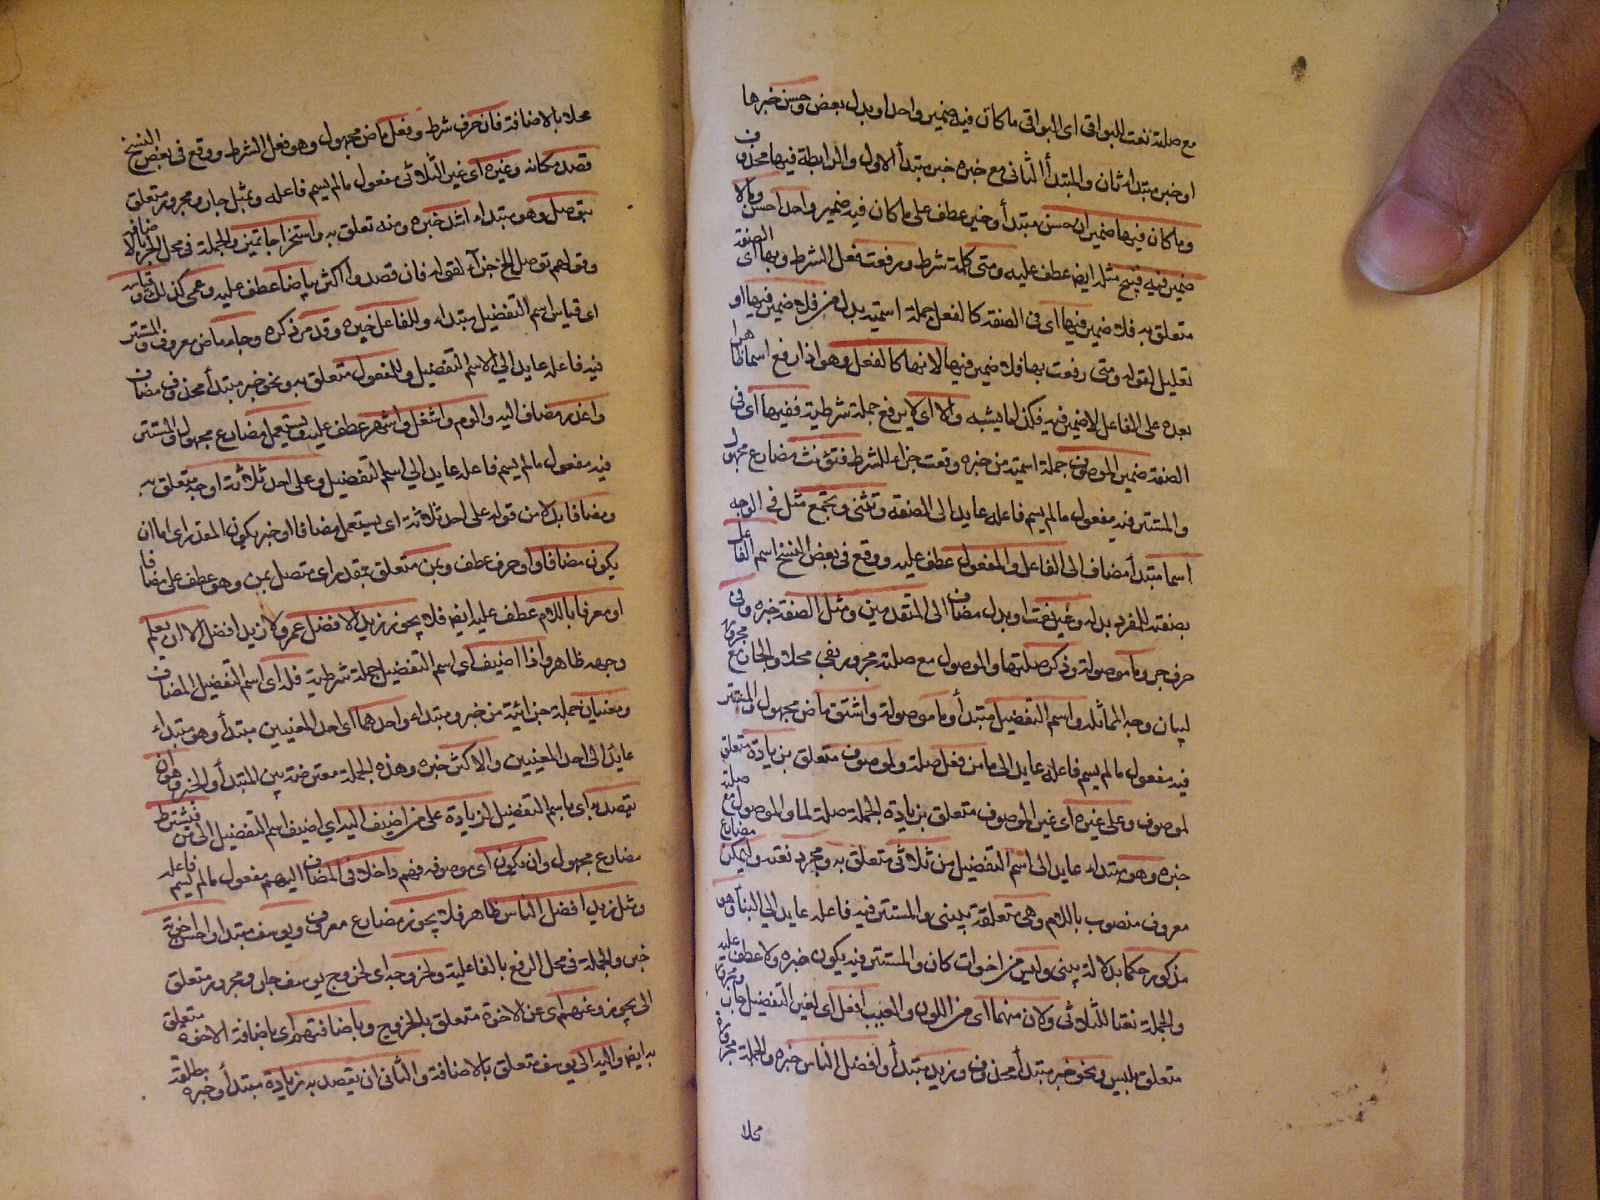 مع صلته نعت البواقى اى البواقى ما كان فيه ضمير واحد او بدل بعض وحسن خبرها
او خبر مبتداء ثان والمبتدأ الثانى مع خبره خبر مبتدأ الاول والرابطة فيها محذوف
وما كان فيها ضميران حسن مبتدأ وخبر عطف على ما كان فيه ضمير واحد احسن وما لا
ضمير فيه قبيح مثله ايضا عطف عليه ومتى كلمة شرط ورفعت فعل الشرط وبها اى الصفة
متعلق به فلا ضمير فيها اى فى الصفة كالفعل جملة اسمية بدل من فلا ضمير فيها او
تعليل لقوله ومتى رفعت بها فلا ضمير فيها لانها كالفعل وهو اذا رفع اسما ظاهرا
بعده على الفاعل لا ضمير فيه فكذا ما يشبه والا اى لا يرفع جملة شرطية ففيها اى فى
الصفة ضمير الموصوف جملة اسمية من خبره وقعت جزاء للشرط فتؤنث مضارع مجهول
والمستتر فيه مفعول ما لم يسم فاعله عايد الى الصفة وتثنى وتجمع مثل فى الوجه
اسما مبتدأ مضاف الى الفاعل والمفعول عطف عليه ووقع فى بعض النسخ اسم الفاعل
بصفة المفرد بدله وغير نعت او بدل مضاف الى المتقدمين ومثل الصفة خبره وفى
حرف جر وما موصولة وذكر صلتها والموصول مع صلته مجرور بفى محلا والجار مع مجروره
لبيان وجه المماثلة واسم التفضيل مبتدأ وما موصولة واشتق ماض مجهول والمستتر
فيه مفعول ما لم يسم فاعله عايد الى ما من فعل صلة ولموصوف متعلق بزيادة متعلق
لموصوف وعلى غيره اى غير الموصوف متعلق بزيادة الجملة صلة لما والموصول مع صلته
خبره وهو مبتداء عايد الى اسم التفضيل من ثلاثى متعلق به ومجرد نعته وليمكن مضارع
معروف منصوب باللام وهى متعلقة بيبنى والمستتر فيه فاعله عايد الى البناء وهو
مذكور حكما بدلالة يبنى وليس من اخوات كان والمستتر فيه يكون خبره ولا عطف عليه
والجملة نعتا للثلاثى ولان منهما اى من اللون والعيب افعل اى لغير التفضيل جار ومجرور
متعلق بليس ونحو خبر مبتدأ محذوف وزيد مبتدأ وافضل الناس خبره والجملة مجرورة
محلا
محلا بالاضافة فان حرف شرط وفعل ماض مجهول وهو فعل الشرط ووقع فى بعض النسخ
قصد مكانه وغيره اى غير الثلاثى مفعول ما لم يسم فاعله وبمثل جار ومجرور متعلق
بتوصل وهو مبتداء اشد خبره ومنه تعلق به واستخراجا تميز والجملة فى محل الجر بالاضافة
وقواهم توصل الخ جزاء لقوله فان قصد واكثر بياضا عطف عليه وعمى كذلك وقياسه
اى قياس اسم التفضيل مبتداء وللفاعل خبره وقد مر ذكره وجاء ماض معروف والمستتر
فيه فاعله عايد الى الاسم التفضيل وللمفعول متعلق به ونحو خبر مبتدأ محذوف مضاف
واعذر مضاف اليه والوم واشغل واشهر عطف عليه ويستعمل مضارع مجهول والمستتر
فيه مفعول ما لم يسم فاعله عايد الى اسم التفضيل وعلى احد ثلاثة اوجه متعلق به
ومضافا بدل من قوله على احد ثلاثة اى يستعمل مضافا او خبر يكون المقدر اى اما ان
يكون مضافا واو حرف عطف وبمن متعلق بمقدر اى متصل بمن وهو عطف على مضافا
او معرفا باللام عطف عليه ايضا فلا يجوز زيد الافضل من عمرو ولا زيد افضل الا ان يعلم
وجهه ظاهر واذا اضيف اى اسم التفضيل جملة شرطية فله اى اسم التفضيل المضاف
ومعنيان جملة جزائية من خبر ومبتداء واحدهما اى احد المعنيين مبتدأ وهو مبتداء
عايد الى احد المعنيين والاكثر خبره وهذه الجملة معترضة بين المبتدأ والخبر وهو ان
يقصد به اى باسم التفضيل الزيادة على من اضيف اليه اى اضيف اسم التفضيل الى من فيشترط
مضارع مجهول وان يكون اى موصوفه فيهم داخلا فى المضاف اليهم مفعول ما لم يسم فاعله
ومثل زيد افضل الناس ظاهر فلا يجوز مضارع معروف ويوسف مبتدا واحسن اخوته
خبر والجملة فى محل الرفع بالفاعلية ولخروجه اى لخروج يوسف جار ومجرور متعلق
الى يجوز وعنهم اى عن الاخوة متعلق بالخروج وباضافتهم اى باضافة الاخوة متعلق
به ايضا واليه الى يوسف متعلق بالاضافة والثانى ان يقصد به زيادة مبتدأ وخبره مطلقة